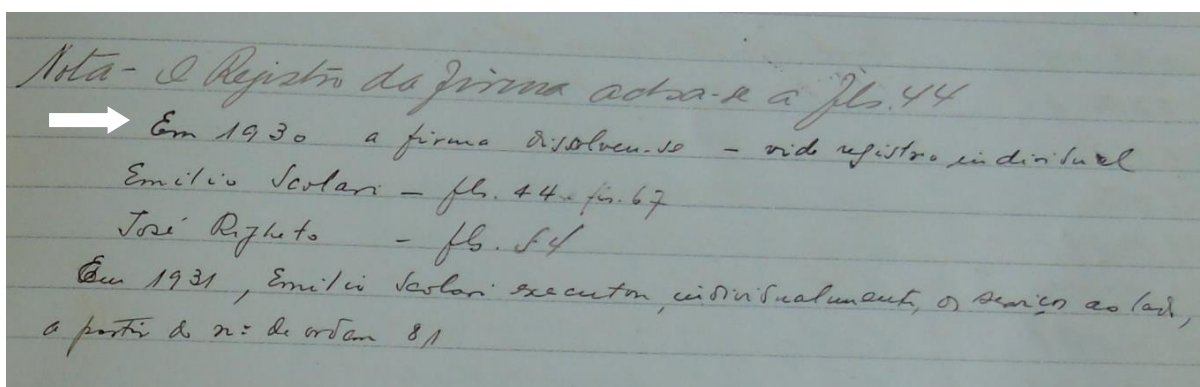 Nota - O Registro da firma acha-se a fls. 44
Em 1930 a firma dissolveu-se - vide registro individual
Emilio Scolari - fls. 44 e fls. 67
José Righeto - fls. 54
Em 1931, Emilio Scolari executou, individualmente, os serviços ao lado,
a partir do nº de ordem 81